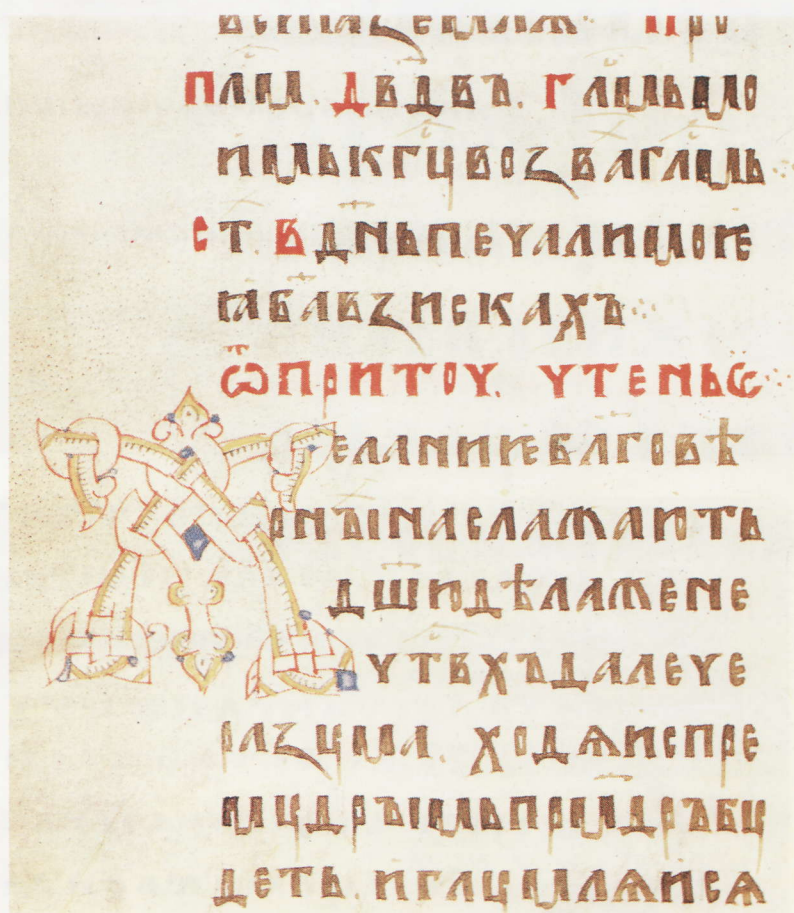 Плам. Двдвъ. Гламьмо
имькгꙋвозвагламь
ст. В дн҃ьпечалимоѥ
ꙗбавзискахъ
ѿпритоу. чтеньѥ
Желаниѥблговѣ
рнꙑнаслажають
дш҃юдѣлажене
чтвхъдалече
разꙋма. ходѧиспре
мꙋдрꙑмьпрмдръбꙋ
деть. иглꙋмлѧисѧ